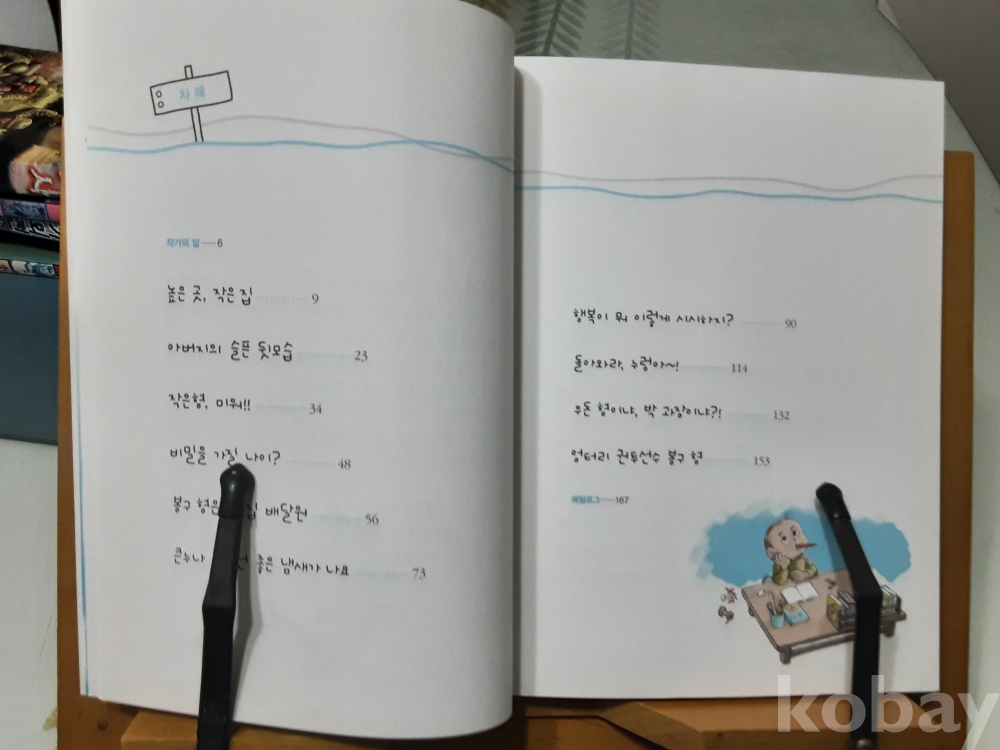 차례
작가의 말……6
높은 곳, 작은 집 ………… 9
아버지의 슬픈 뒷모습 ………… 23
작은형, 미워!! ………… 34
비밀을 가질 나이? ………… 48
봉구 형은 배달원 ………… 56
큰누나 좋은 냄새가 나요 ………… 73
행복이 뭐 이렇게 시시하지? ………… 90
돌아와라, 누렁아~! ………… 114
우돈 형이냐, 박 과장이냐?! ………… 132
엉터리 권투선수 봉구 형 ………… 153
에필로그……167
kobay